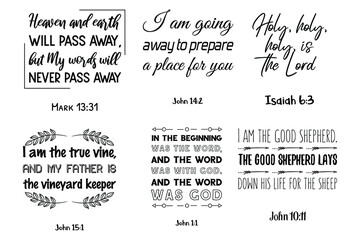 Heaven and earth
WILL PASS AWAY,
but My words will
NEVER PASS AWAY
MARK 13:31
I am going
away to prepare
a place for you
John 14:2
Holy, holy,
holy is
the Lord
Isaiah 6:3
I am the true vine,
AND MY FATHER IS
the vineyard keeper
John 15:1
IN THE BEGINNING
WAS THE WORD,
AND THE WORD
WAS WITH GOD,
AND THE WORD
WAS GOD
John 1:1
I AM THE GOOD SHEPHERD.
THE GOOD SHEPHERD LAYS
DOWN HIS LIFE FOR THE SHEEP
John 10:11